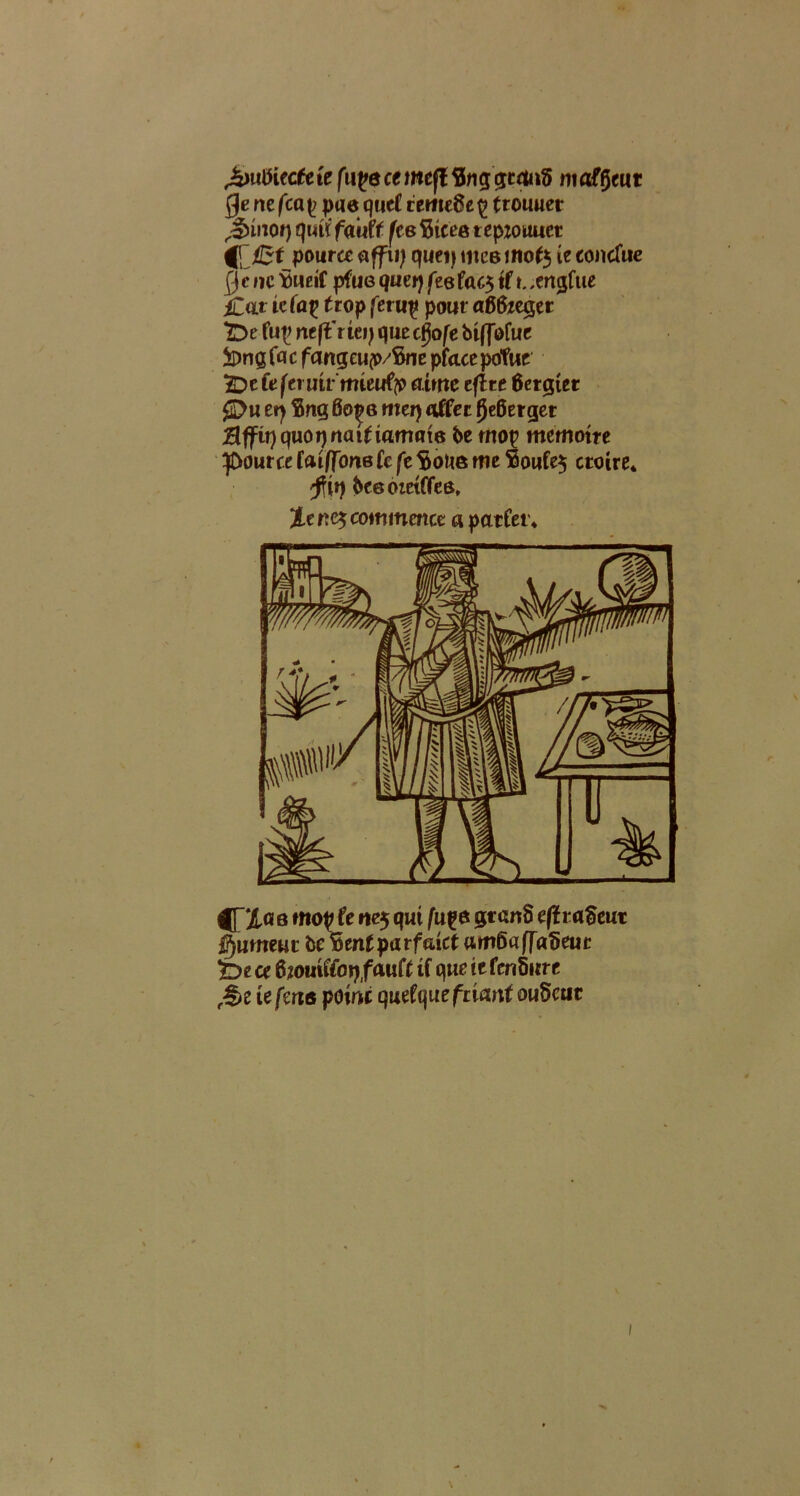 Subiecte ie suys ce mest vng grand malheur
Je ne scay pas quel remede y trouuer
Sinon quil fault ses vices reprouuer
¶ Et pource affin quen mes motz ie conclue
Je ne vueil plus quen ses lacz il t..englue
Car ie lay trop seruy pour abbreger
De luy nest rien que chose dissolue
Vng lac fangeux/vne place polue
De le seruir mieulx aime estre bergier
Ou en vng boys men aller heberger
Affin quon nait iamais de moy memoire
Pource laissons le se vous me voulez croire.
Fin des oreilles.
Le nez commence a parler.
¶ Las moy le nez qui suys grand estradeur
Humeur de vent parfaict ambassadeur
De ce brouillon fault il que ie lendure
Se ie sens point quelque friant oudeur